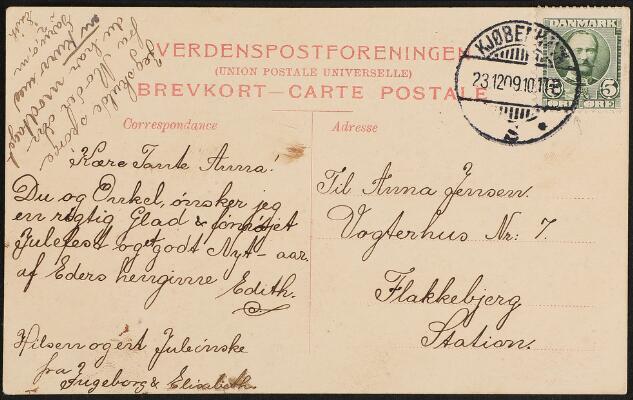 VERDENSPOSTFORENINGEN
(UNION POSTALE UNIVERSELLE)
BREVKORT—CARTE POSTALE
Correspondance
Adresse
DANMARK
5 5
ØRE ØRE
KJØBENHAVN
23.12 09.10
Kære Tante Anna!
Du og Onkel, ønsker jeg
en rigtig Glad & fornøjet
Julefest og et godt Nyt-aar
af Eders hengivne
Edith.
Hilsen og et Juleønske
fra
Ingeborg & Elisabeth
Til Anna Jensen.
Vogterhus Nr: 7.
Flakkebjerg
Station.
Jeg skulde spørge
fra Mo'r om
du har modtaget
en
Edith